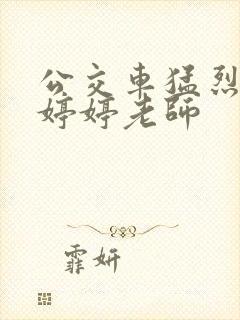 公交車猛烈
婷婷老師
霏妍